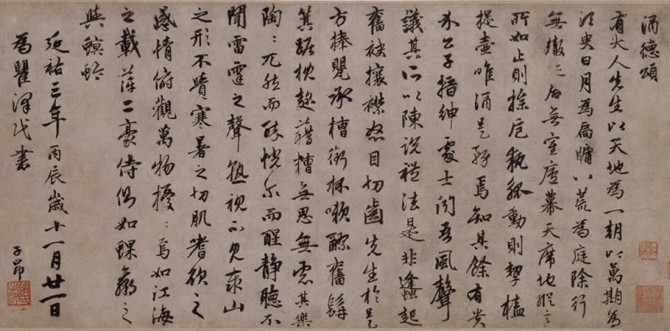 酒德頌
有大人先生以天地為一朝以萬期為
須臾日月為扃牖八荒為庭除行
無轍迹居無室廬幕天席地縱意
所如止則操卮執觚動則挈榼
提壺唯酒是務焉知其餘有貴
介公子搢紳處士聞吾風聲
議其所以陳說禮法是非蠭起
奮袂攘襟怒目切齒先生於是
方捧罌承槽銜杯漱醪奮髯
箕踞枕麴藉糟無思無慮其樂
陶〻兀然而醉恍尒而醒靜聽不
聞雷霆之聲熟視不見泰山
之形不覺寒暑之切肌嗜欲之
感情俯觀萬物擾〻焉如江海
之載萍二豪侍側如蜾蠃之
與螟蛉
延祐三年丙辰歲十一月廿一日
為瞿澤民書
子昂